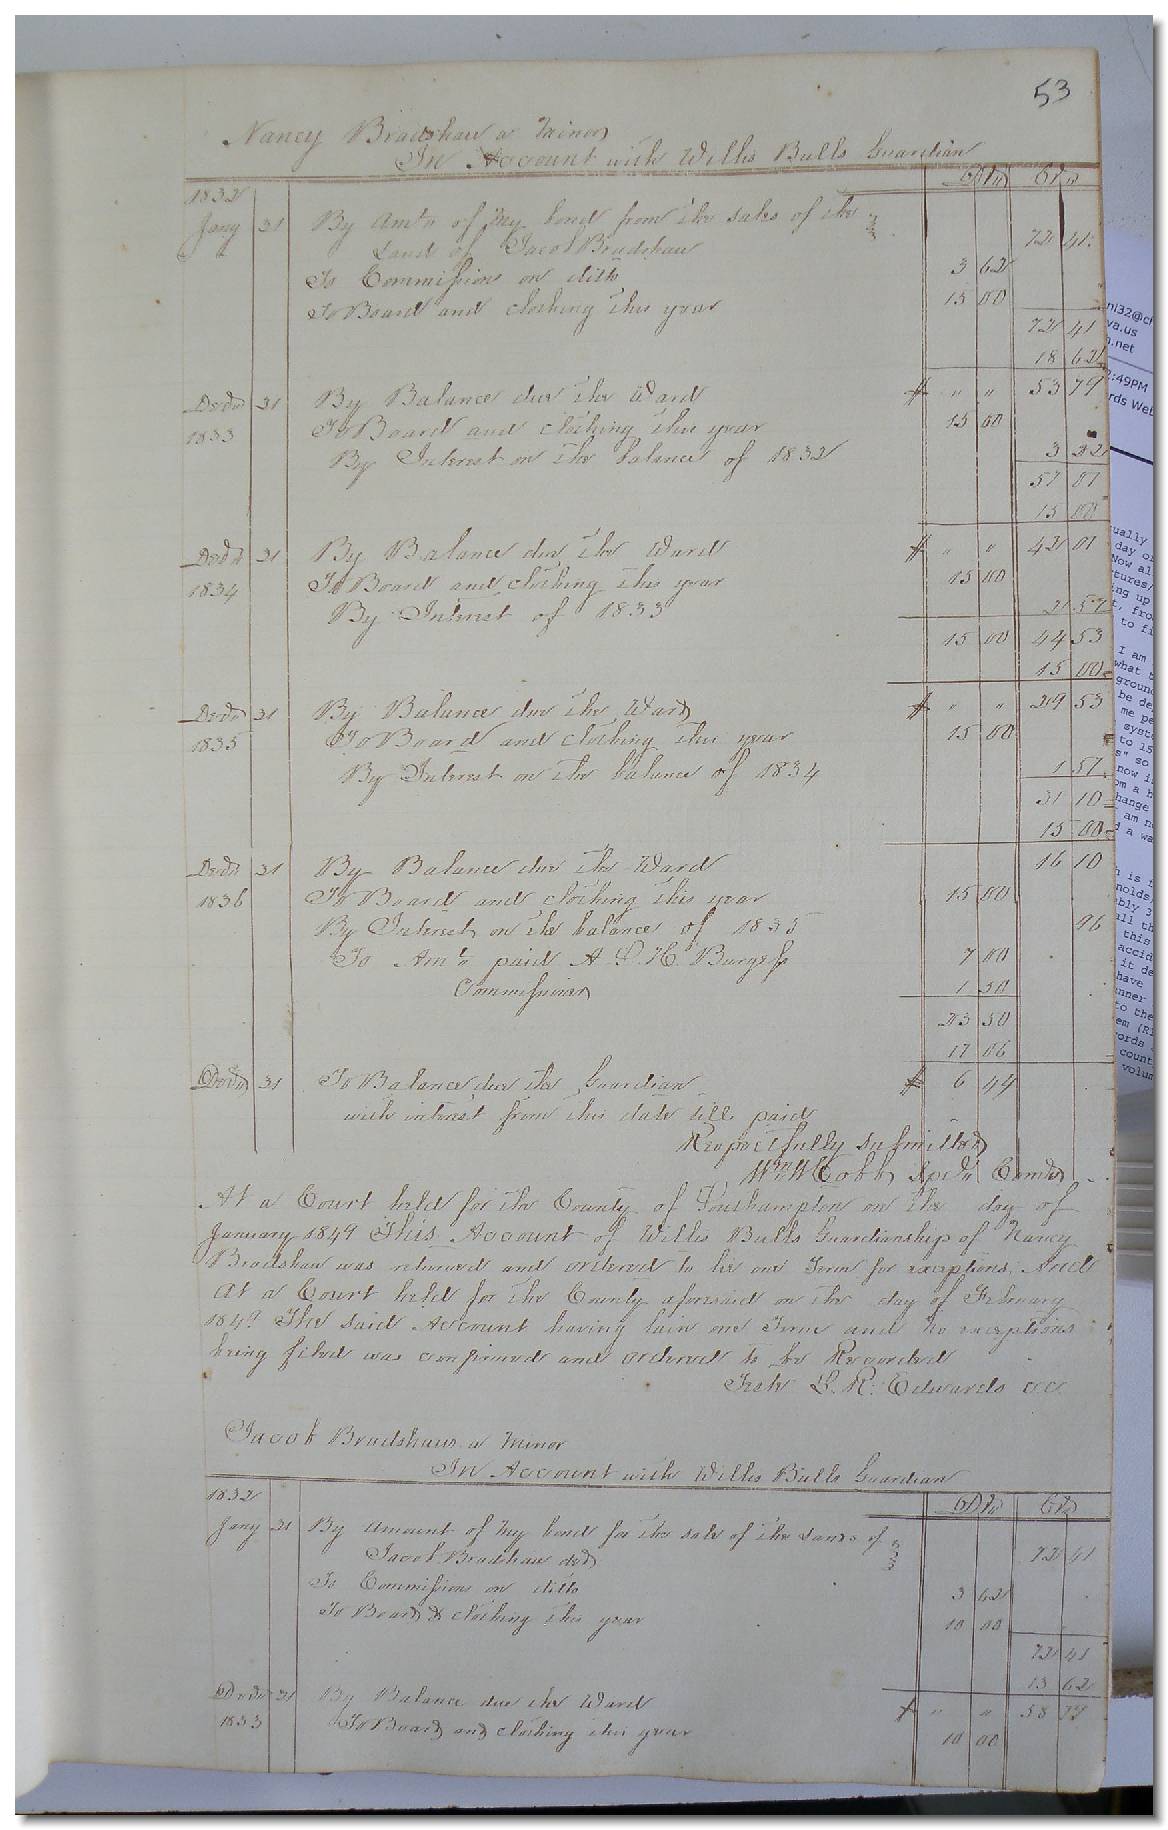 53
Nancy Bradshaw a Minor
In Account with Willis Bulls Guardian
Drs Crs
1832
Jany 31 By Amt of my bond from the sales of the
Land of Jacob Bradshaw 72 41
To Commission on ditto 3 62
To Board and clothing this year 15 00
72 41
18 62
Decr 31 By Balance due the Ward $ " " 53 79
1833 To Board and clothing this year 15 00
By Interest on the balance of 1832 3 22
57 01
15 00
Decr 31 By Balance due the Ward $ " " 42 01
1834 To Board and clothing this year 15 00
By Interest of 1833 2 52
15 00 44 53
15 00
Decr 31 By Balance due the Ward $ " " 29 53
1835 To Board and clothing this year 15 00
By Interest on the balance of 1834 1 57
31 10
15 00
Decr 31 By Balance due the Ward 16 10
1836 To Board and clothing this year 15 00
By Interest on the balance of 1835 96
To Amt paid A. S. H. Burgess 7 00
Commissioner 1 50
23 50
17 06
Decr 31 To Balance due the Guardian $ 6 44
with interest from this date till paid
Respectfully submitted
Wm W Cobb Specl Comr
At a Court held for the County of Southampton on the day of
January 1849 This Account of Willis Bulls Guardianship of Nancy
Bradshaw was returned and ordered to lie one Term for exceptions, And
At a Court held for the County aforesaid on the day of February
1849 The said Account having lain one Term and no exceptions
being filed was confirmed and ordered to be Recorded
Teste L. R. Edwards cc
Jacob Bradshaw a Minor
In Account with Willis Bulls Guardian
1832 Drs Crs
Jany 31 By Amount of my bond for the sale of the Lands of
Jacob Bradshaw decd 72 41
To Commissions on ditto 3 62
To Board & clothing this year 10 00
72 41
13 62
Decr 31 By Balance due the Ward $ " " 58 79
1833 To Board and clothing this year 10 00